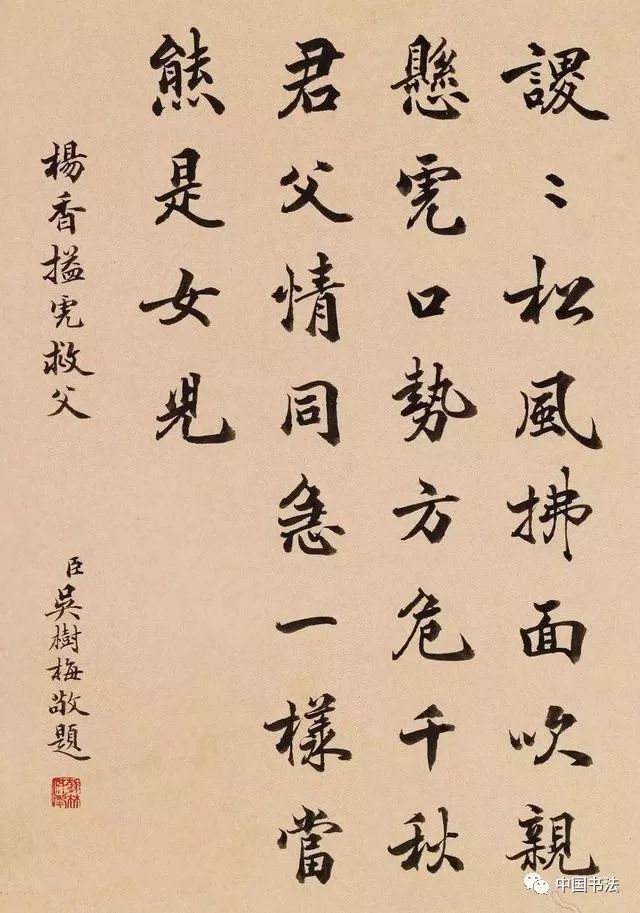 謖〻松風拂面吹親
懸虎口勢方危千秋
君父情同急一樣當
熊是女兒
楊香搤虎救父
臣吳樹梅敬題
中国书法